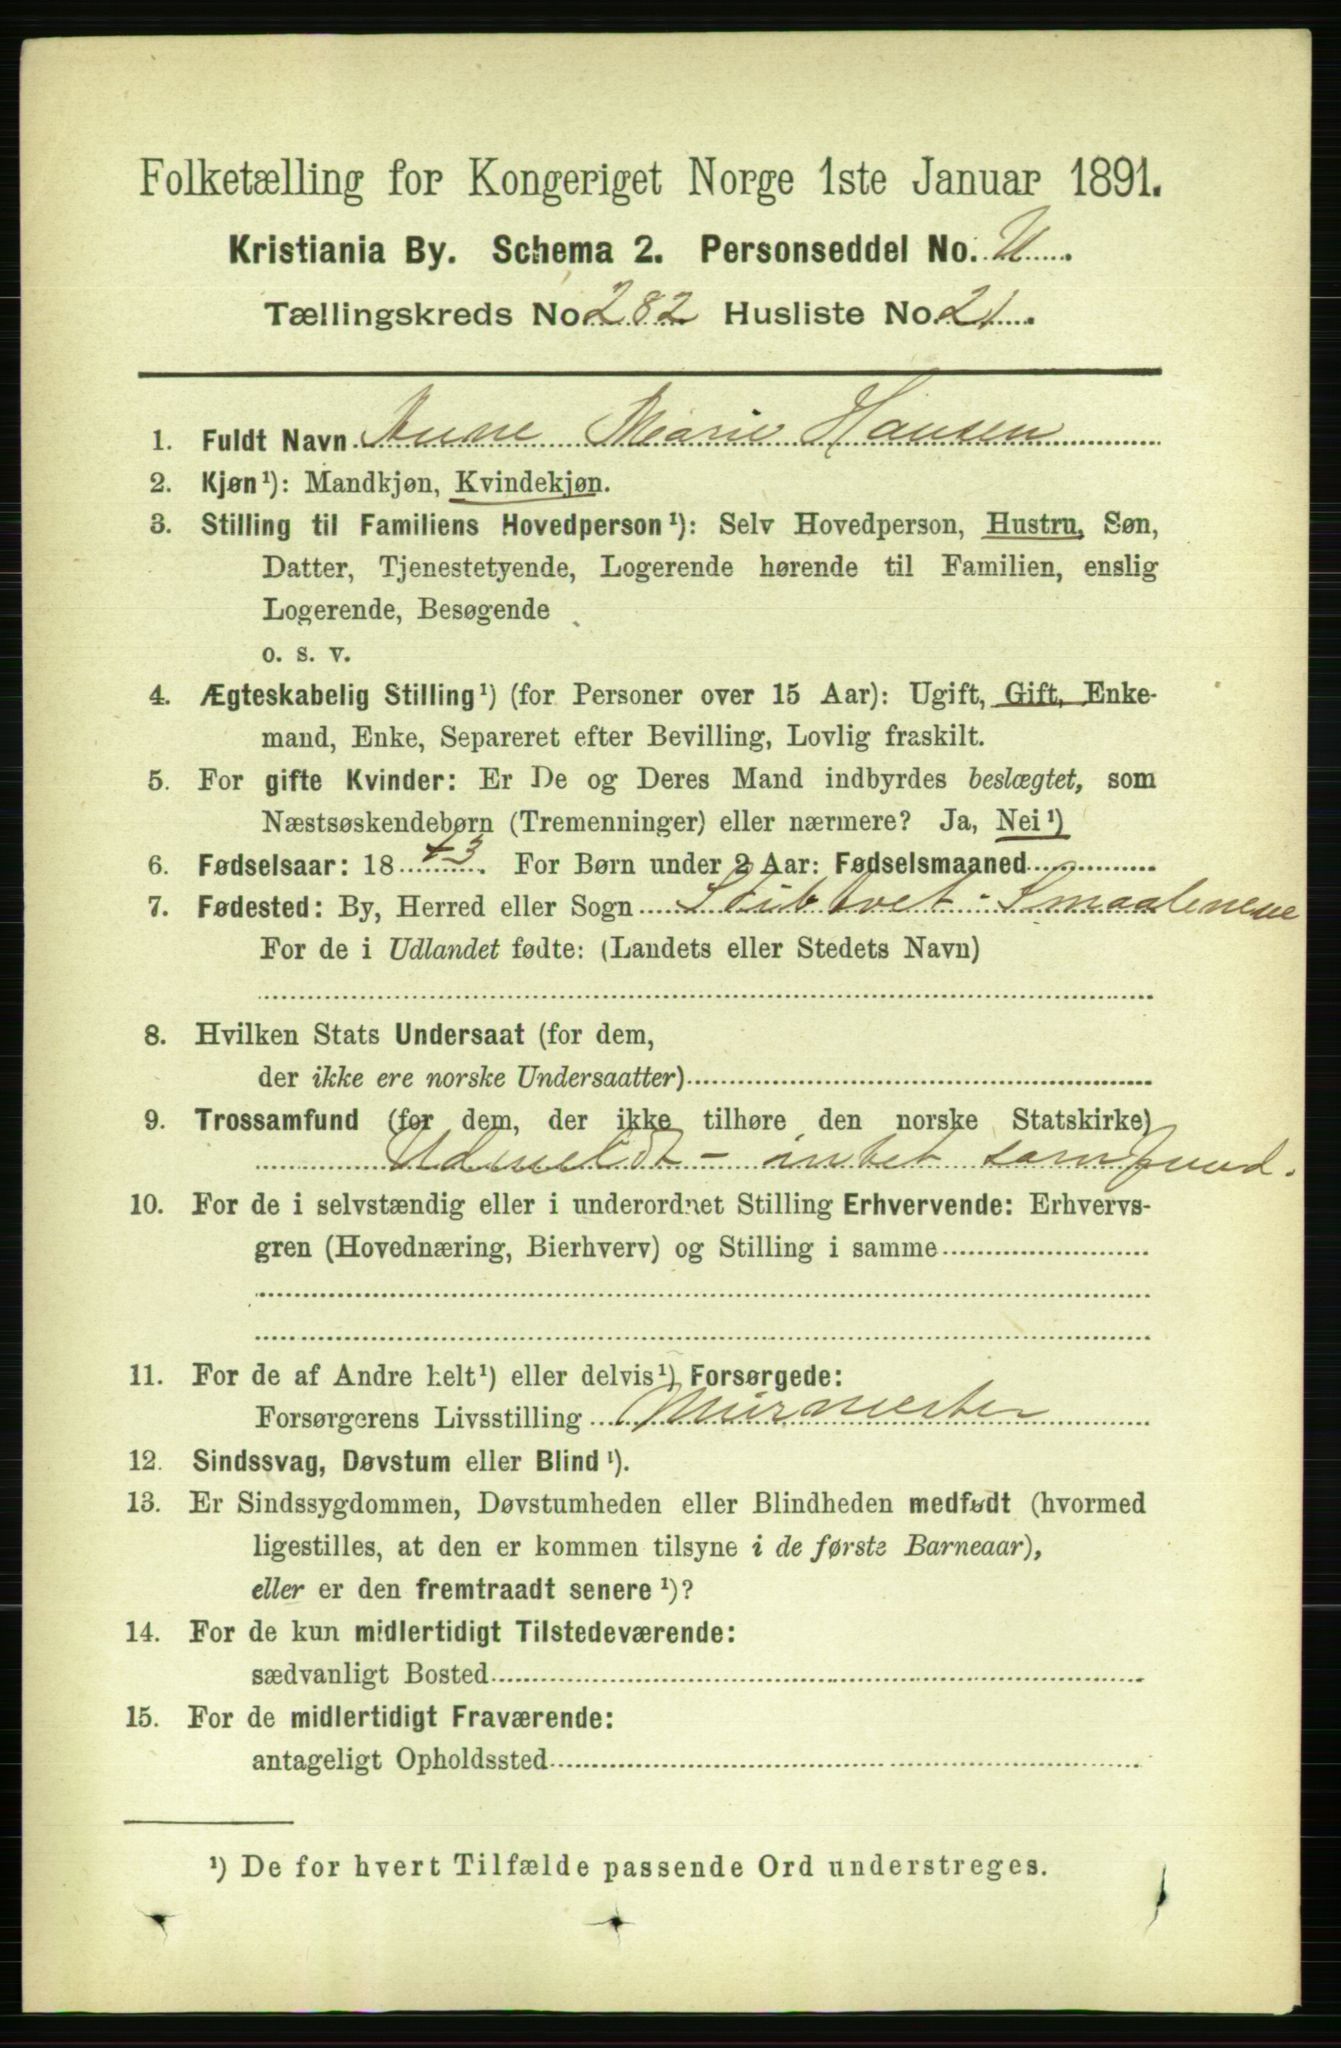 Folketælling for Kongeriget Norge 1ste Januar 1891.
Kristiania By. Schema 2. Personseddel No.
Tællingskreds No 282 Husliste No 21.
1. Fuldt Navn Anne Marie Hansen
2. Kjøn¹): Mandkjøn, Kvindekjøn.
3. Stilling til Familiens Hovedperson¹): Selv Hovedperson, Hustru, Søn,
Datter, Tjenestetyende, Logerende hørende til Familien, enslig
Logerende, Besøgende
o. s. v.
4. Ægteskabelig Stilling¹) (for Personer over 15 Aar): Ugift, Gift, Enke-
mand, Enke, Separeret efter Bevilling, Lovlig fraskilt.
5. For gifte Kvinder: Er De og Deres Mand indbyrdes beslægtet, som
Næstsøskendebørn (Tremenninger) eller nærmere? Ja, Nei¹)
6. Fødselsaar: 1843. For Børn under 2 Aar: Fødselsmaaned
7. Fødested: By, Herred eller Sogn Skibtvet - Smaalenene
For de i Udlandet fødte: (Landets eller Stedets Navn)
8. Hvilken Stats Undersaat (for dem,
der ikke ere norske Undersaatter)
9. Trossamfund (for dem, der ikke tilhøre den norske Statskirke)
Udmeldt - intet samfund.
10. For de i selvstændig eller i underordnet Stilling Erhvervende: Erhvervs-
gren (Hovednæring, Bierhverv) og Stilling i samme
11. For de af Andre helt¹) eller delvis¹) Forsørgede:
Forsørgerens Livsstilling Murmester
12. Sindssvag, Døvstum eller Blind¹).
13. Er Sindssygdommen, Døvstumheden eller Blindheden medfødt (hvormed
ligestilles, at den er kommen tilsyne i de første Barneaar),
eller er den fremtraadt senere¹)?
14. For de kun midlertidigt Tilstedeværende:
sædvanligt Bosted
15. For de midlertidigt Fraværende:
antageligt Opholdssted
¹) De for hvert Tilfælde passende Ord understreges.